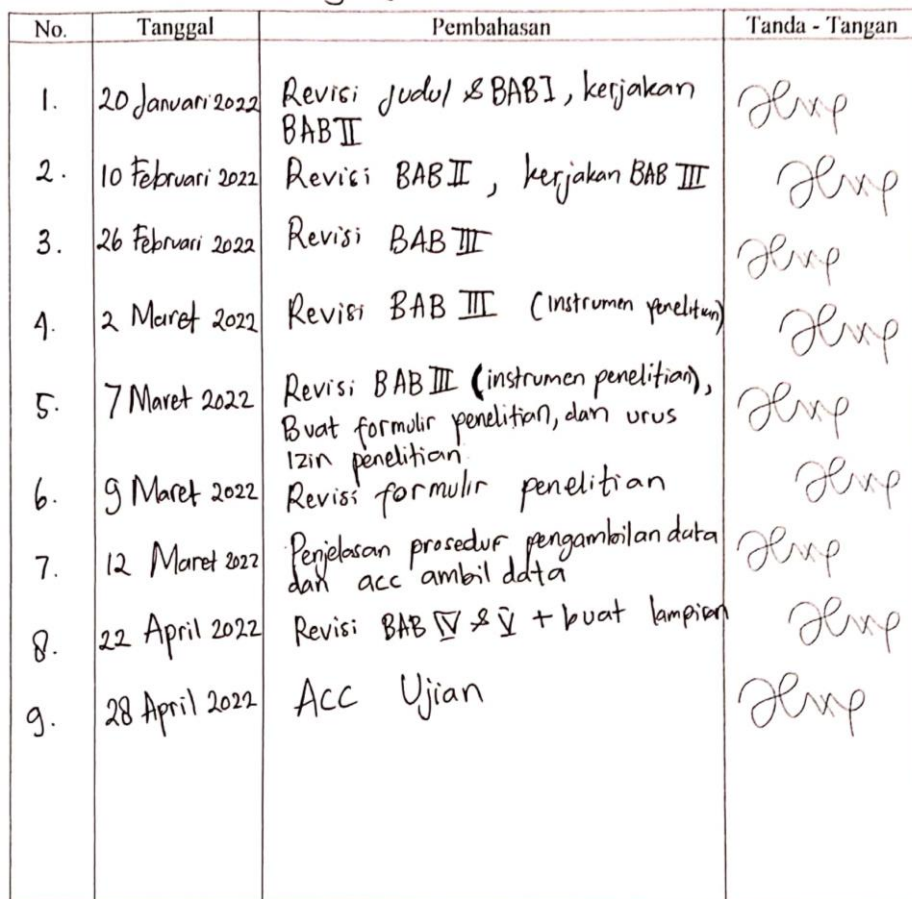 No. Tanggal Pembahasan Tanda - Tangan
1. 20 Januari 2022 Revisi Judul & BAB I, kerjakan
BAB II
2. 10 Februari 2022 Revisi BAB II, kerjakan BAB III
3. 26 Februari 2022 Revisi BAB III
4. 2 Maret 2022 Revisi BAB III (Instrumen penelitian)
5. 7 Maret 2022 Revisi BAB III (instrumen penelitian),
Buat formulir penelitian, dan urus
Izin penelitian
6. 9 Maret 2022 Revisi formulir penelitian
7. 12 Maret 2022 Penjelasan prosedur pengambilan data
dan acc ambil data
8. 22 April 2022 Revisi BAB IV & V + buat lampiran
9. 28 April 2022 Acc Ujian